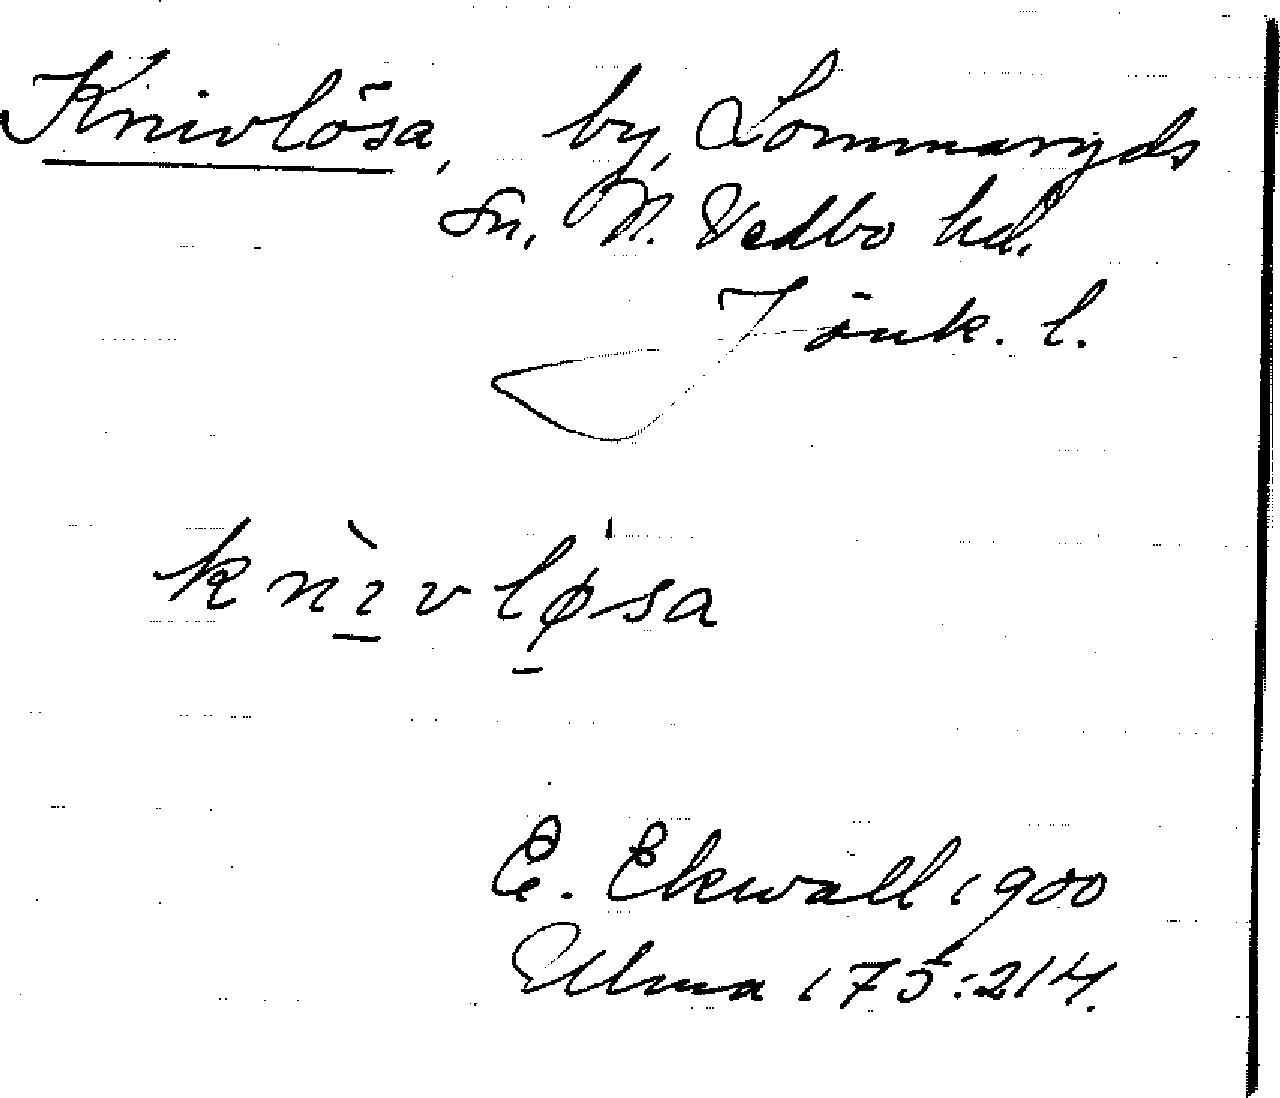 Knivlösa, by, Lommaryds
sn. N. Vedbo hd.
Jönk. l.
knìvlø̍sa
E. Ekwall 1900
Ulma 175:214.